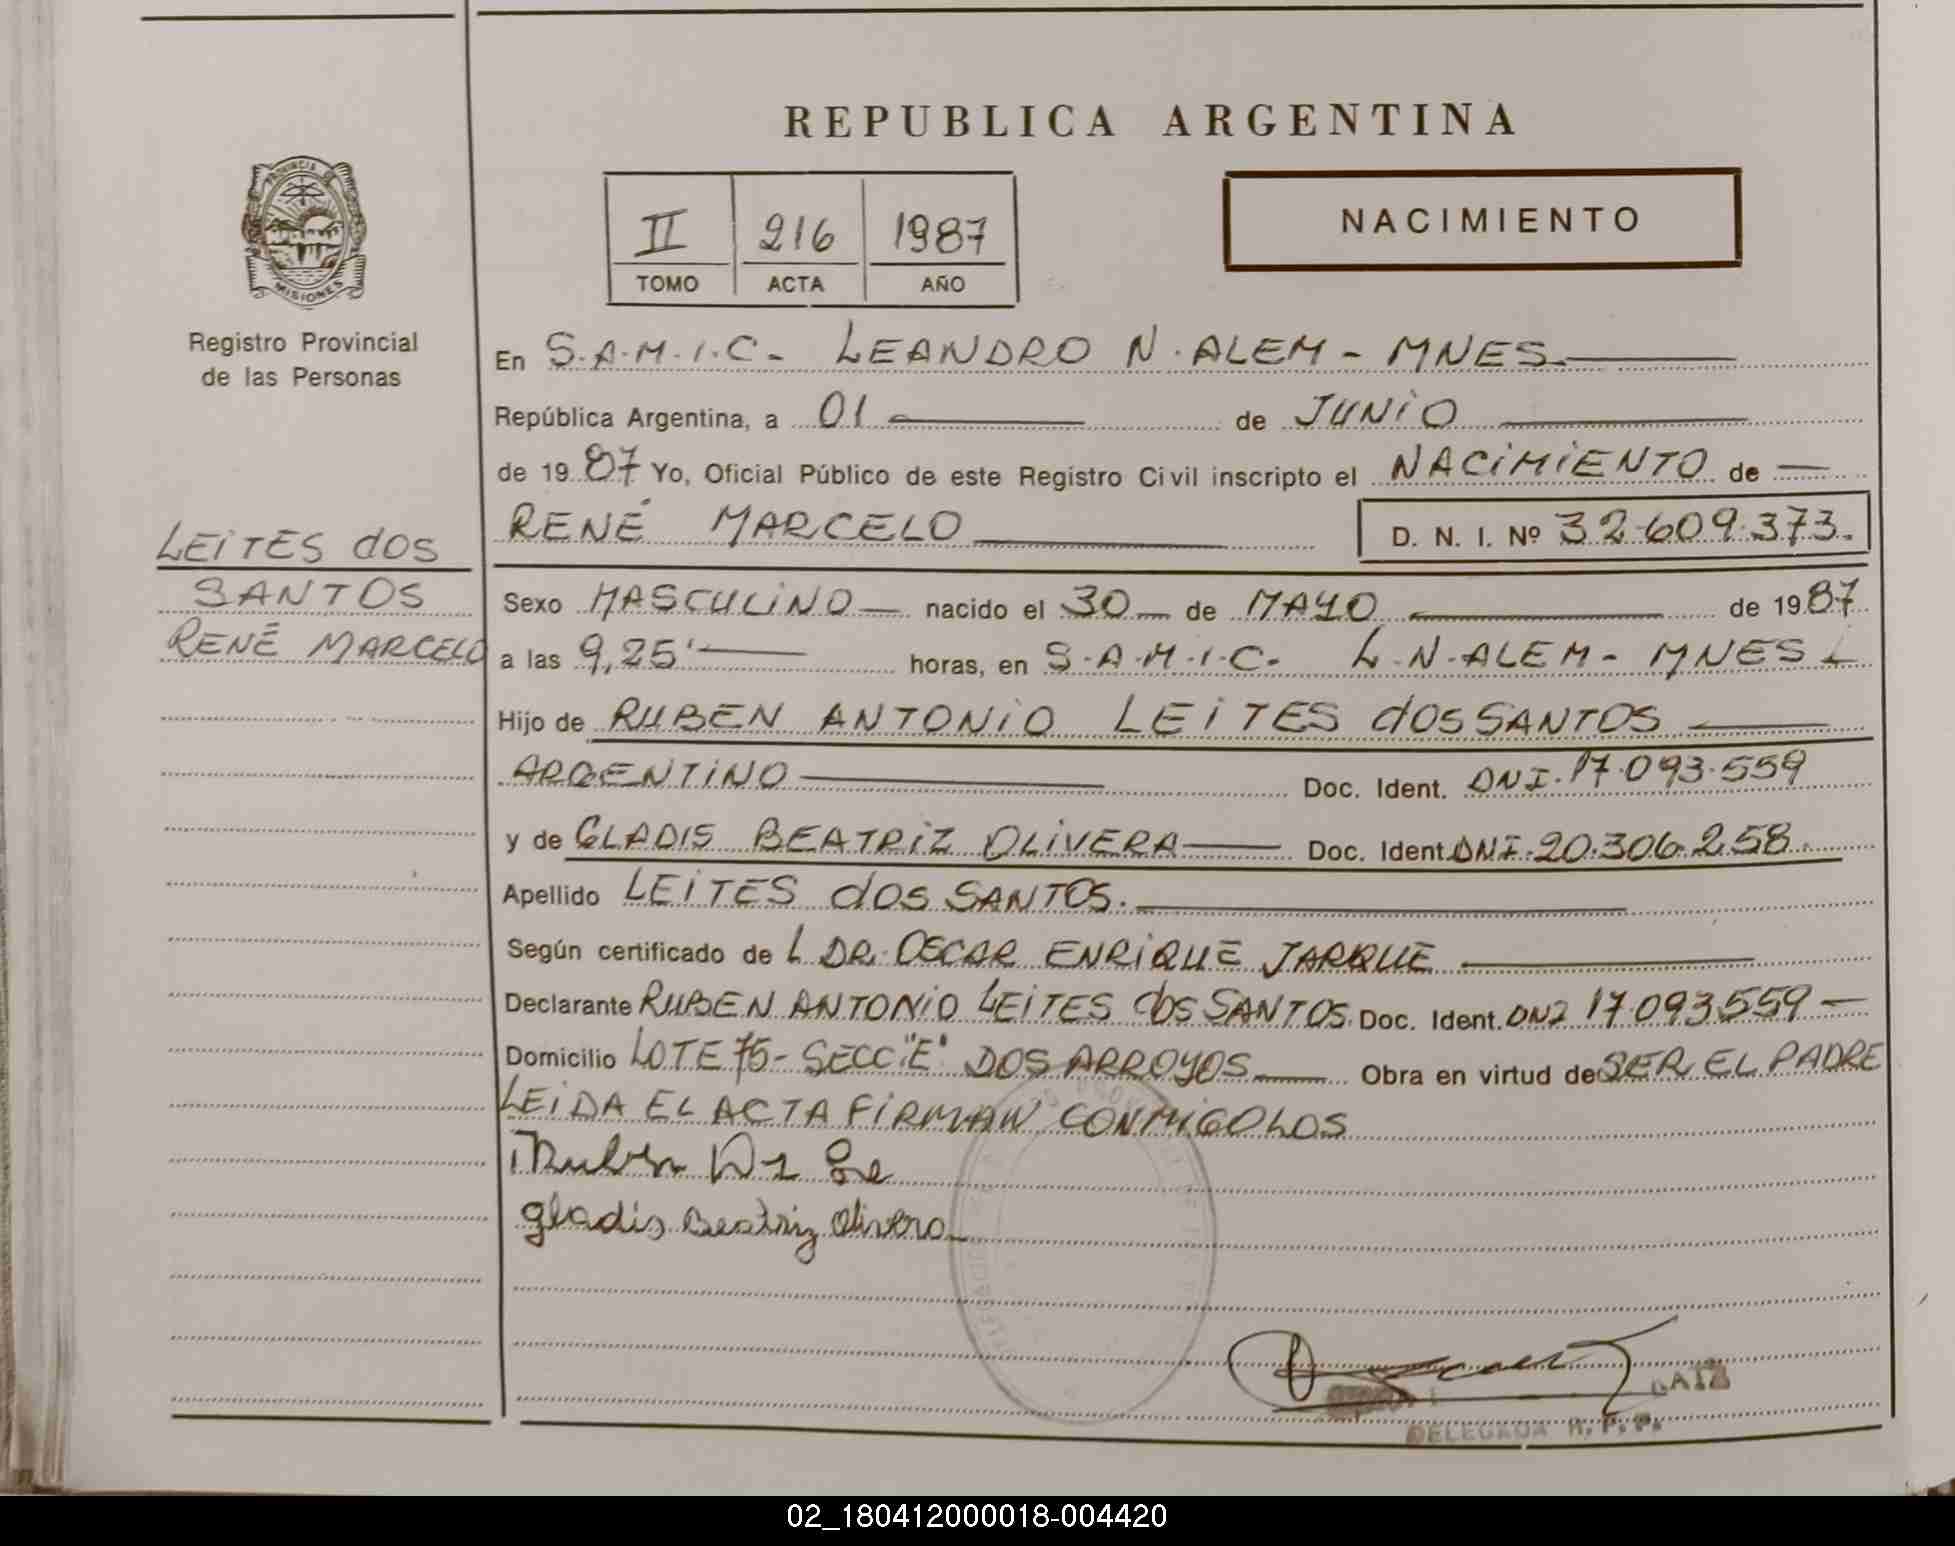 REPUBLICA ARGENTINA
PROVINCIA DE
MISIONES
Registro Provincial
de las Personas
II 216 1987
TOMO ACTA AÑO
NACIMIENTO
En S.A.M.I.C. LEANDRO N. ALEM - MNES.
República Argentina, a 01 de JUNIO
de 1987 Yo, Oficial Público de este Registro Civil inscripto el NACIMIENTO de
RENÉ MARCELO D. N. I. Nº 32.609.373.
LEITES dOS
SANTOS
RENÉ MARCELO
Sexo MASCULINO nacido el 30 de MAYO de 1987
a las 9,25' horas, en S.A.M.I.C. L.N.ALEM - MNES
Hijo de RUBEN ANTONIO LEITES dOS SANTOS
ARGENTINO Doc. Ident. DNI. 17.093.559
y de GLADIS BEATRIZ OLIVERA Doc. Ident. DNI. 20.306.258.
Apellido LEITES dOS SANTOS.
Según certificado de L DR. OSCAR ENRIQUE JARQUE
Declarante RUBEN ANTONIO LEITES dOS SANTOS. Doc. Ident. DNI 17.093.559
Domicilio LOTE 75 - SECC "E" DOS ARROYOS Obra en virtud de SER EL PADRE
LEIDA EL ACTA FIRMAN CONMIGO LOS
Ruben
Gladis Beatriz Olivera
DELEGADA R. P. P.
02_180412000018-004420